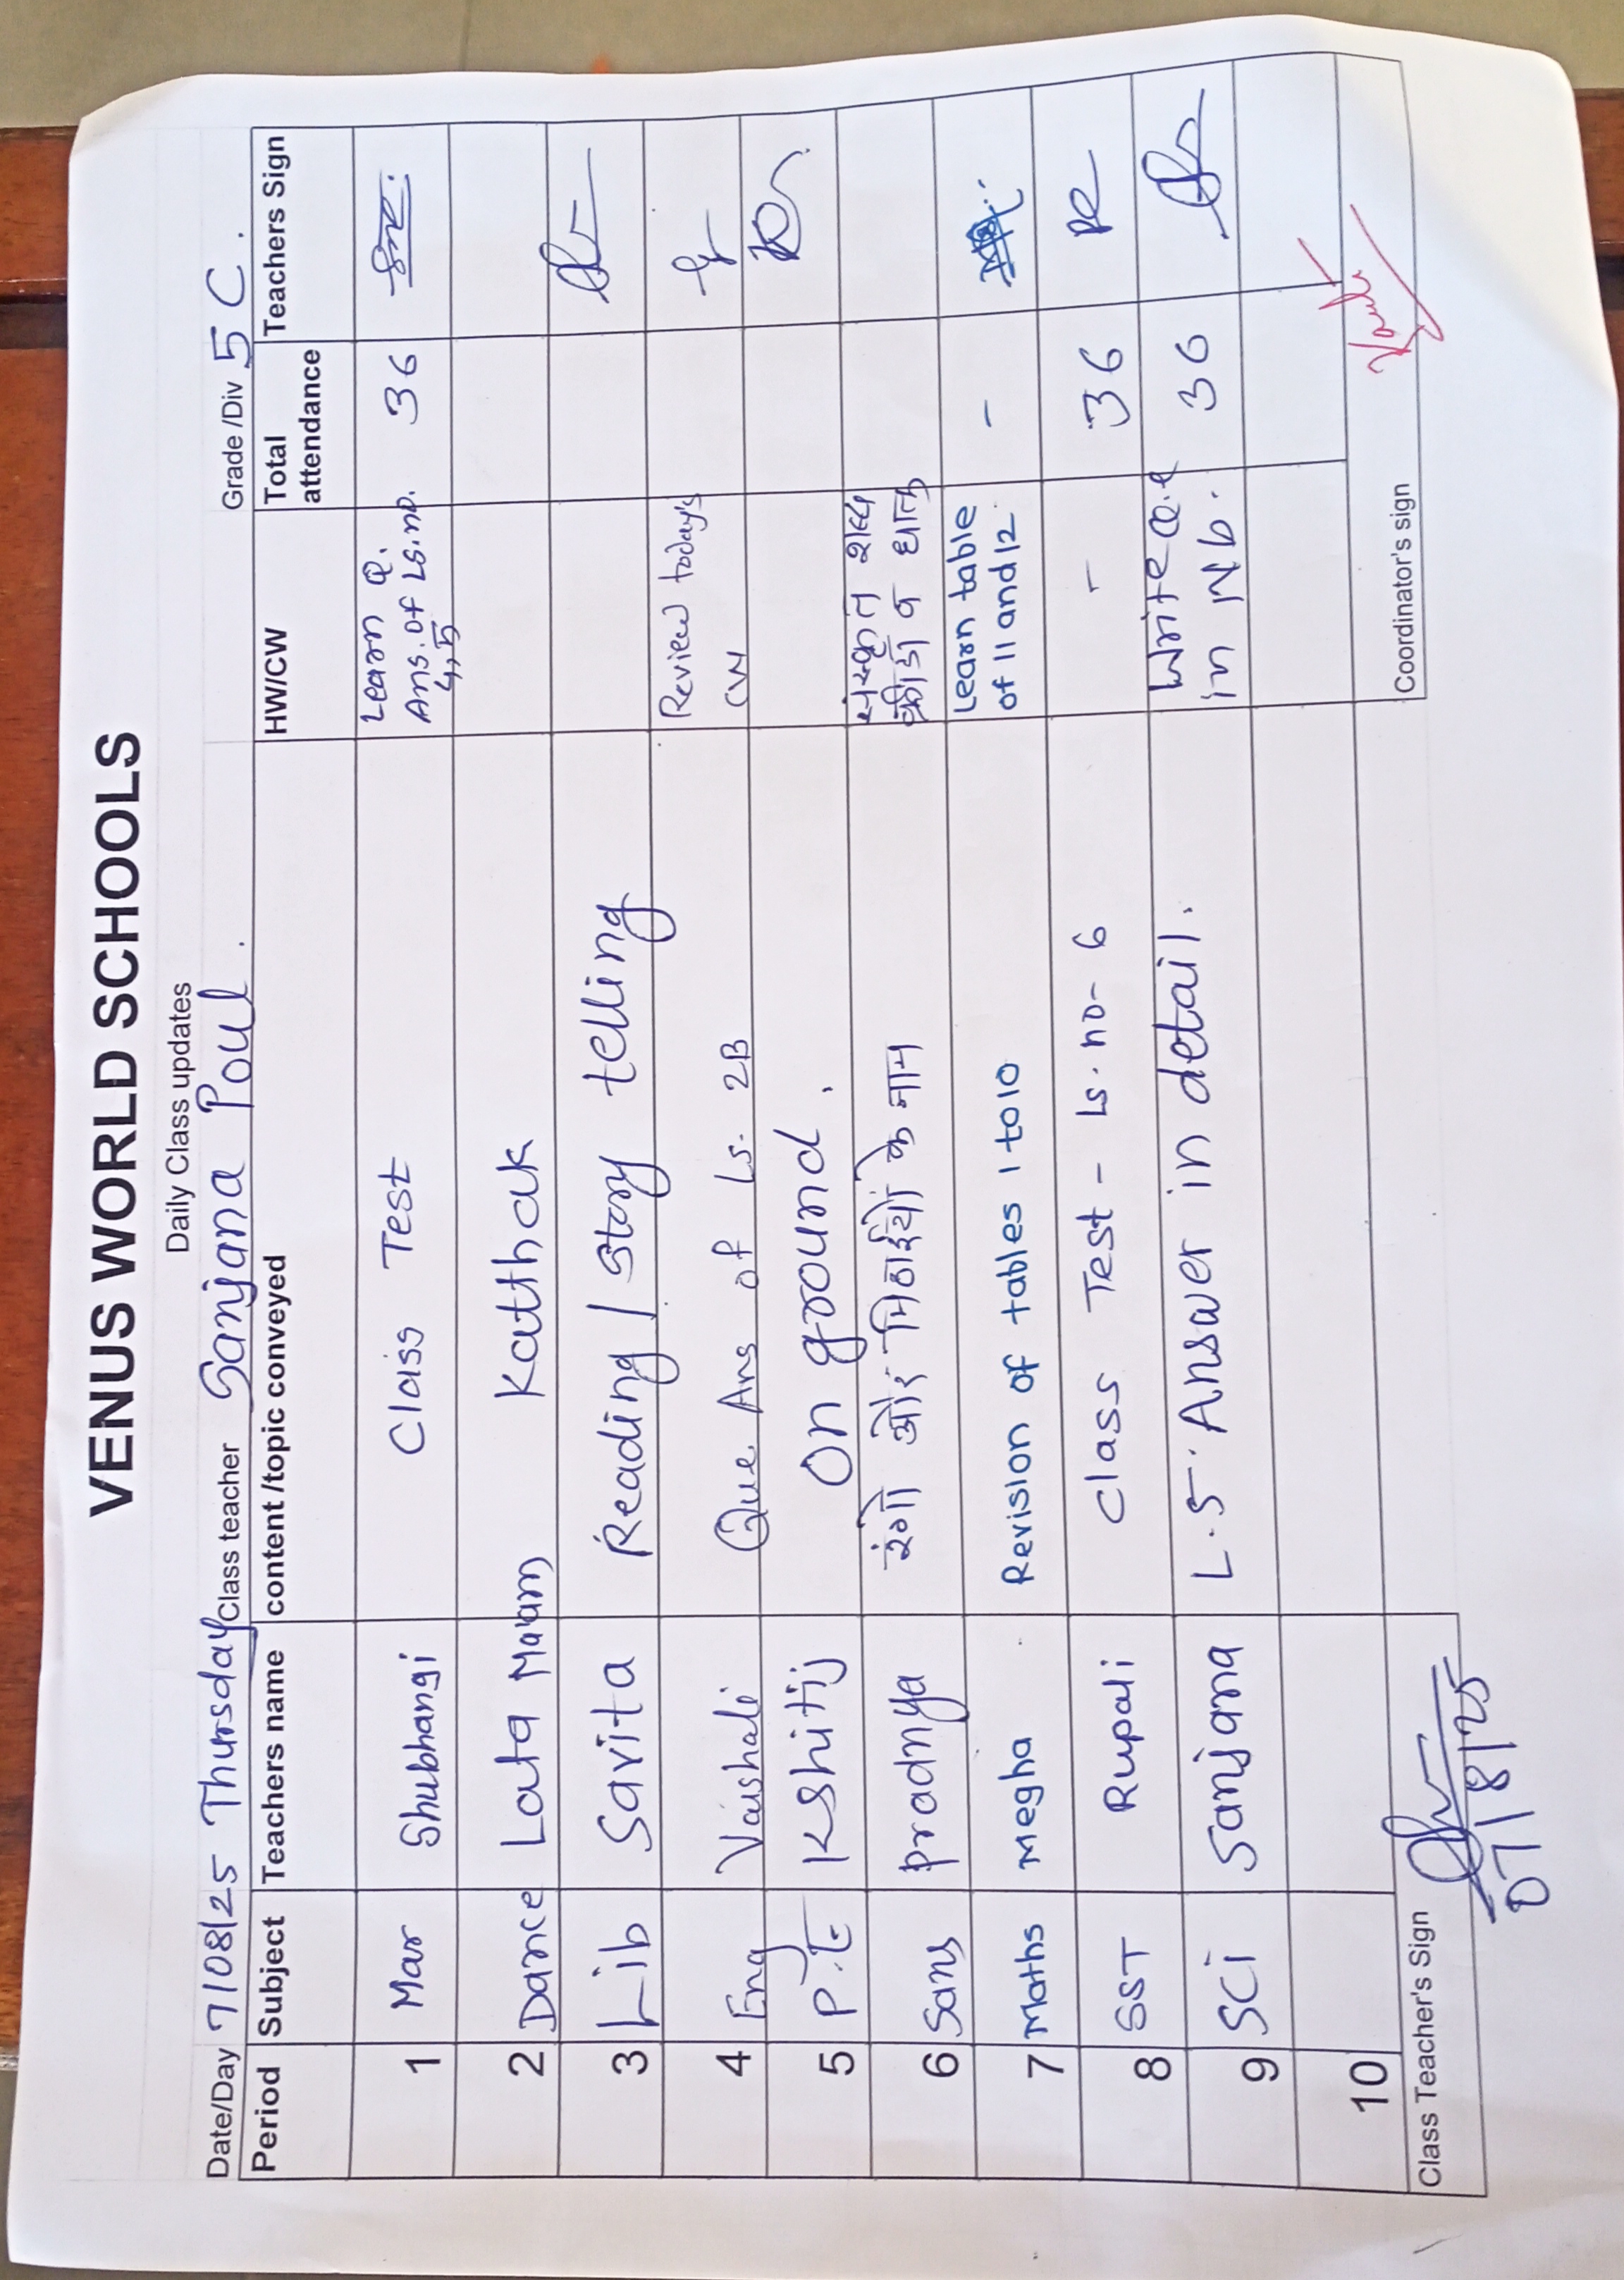 VENUS WORLD SCHOOLS
Daily Class updates
Date/Day 7/08/25 Thursday Class teacher Sanjana Poul. Grade /Div 5 C.
Period Subject Teachers name content /topic conveyed HW/CW Total attendance Teachers Sign
1 Mar Shubhangi Class Test Learn Q. Ans. of Ls.no. 4,5 36
2 Dance Lata Maam Katthak
3 Lib Savita Reading / Story telling
4 Eng Vaishali Que Ans of Ls. 2B Review today's CW
5 P.E Kshitij On ground.
6 Sans pradnya रंगो और मिठाईयों के नाम संस्कृत शब्द क्रीडा व धातु
7 Maths megha Revision of tables 1 to 10 Learn table of 11 and 12 -
8 SST Rupali Class Test - Ls. no- 6 - 36
9 SCI Sanjana L.5. Answer in detail. Write Q.4 in Nb. 36
10
Class Teacher's Sign 07/8/25 Coordinator's sign